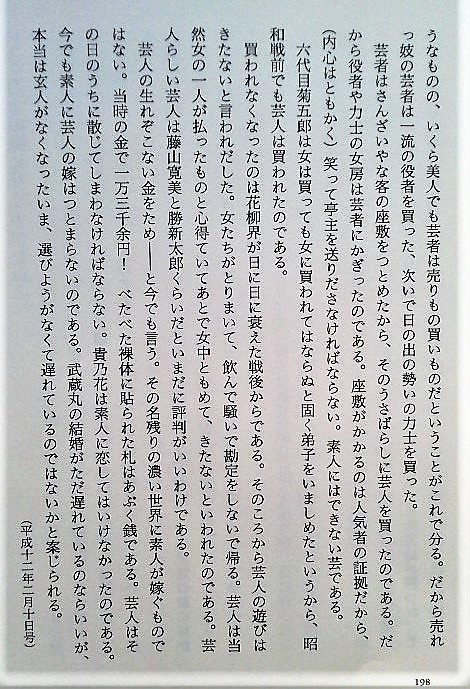 うなものの、いくら美人でも芸者は売りもの買いものだということがこれで分る。だから売れ
っ妓の芸者は一流の役者を買った、次いで日の出の勢いの力士を買った。
芸者はさんざいやな客の座敷をつとめたから、そのうさばらしに芸人を買ったのである。だ
から役者や力士の女房は芸者にかぎったのである。座敷がかかるのは人気者の証拠だから、
(内心はともかく)笑って亭主を送りださなければならない。素人にはできない芸である。
六代目菊五郎は女は買っても女に買われてはならぬと固く弟子をいましめたというから、昭
和戦前でも芸人は買われたのである。
買われなくなったのは花柳界が日に日に衰えた戦後からである。そのころから芸人の遊びは
きたないと言われだした。女たちがとりまいて、飲んで騒いで勘定をしないで帰る。芸人は当
然女の一人が払ったものと心得ていてあとで女中ともめて、きたないといわれたのである。芸
人らしい芸人は藤山寛美と勝新太郎くらいだといまだに評判がいいわけである。
芸人の生れぞこない金をため――と今でも言う。その名残りの濃い世界に素人が嫁ぐもので
はない。当時の金で一万三千余円! べたべた裸体に貼られた札はあぶく銭である。芸人はそ
の日のうちに散じてしまわなければならない。貴乃花は素人に恋してはいけなかったのである。
今でも素人に芸人の嫁はつとまらないのである。武蔵丸の結婚がただ遅れているのならいいが、
本当は玄人がなくなったいま、選びようがなくて遅れているのではないかと案じられる。
(平成十二年二月十日号)
198